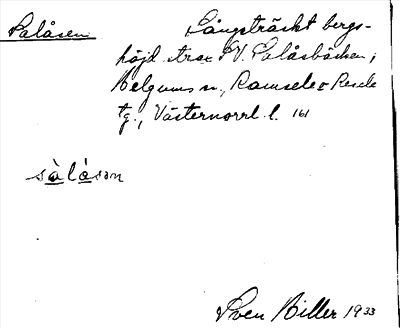 Salåsen Långsträckt bergs-
höjd strax V. Salåsbäcken,
Helgums sn, Ramsele o Resele
tg., Västernorrl. l. 161
sàlåsən
Sven Biller 1933